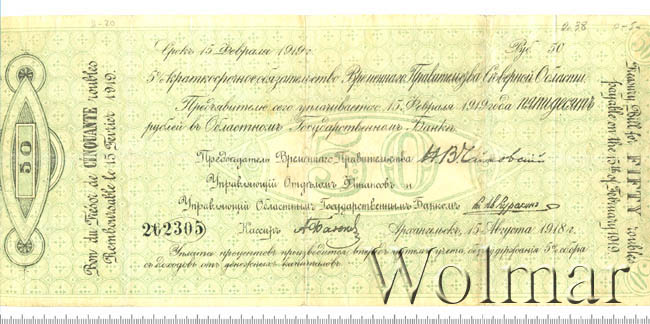 Срокъ 15 Февраля 1919 г.
Руб. 50
5% краткосрочное обязательство Временнаго Правительства Сѣверной Области
Предъявителю сего уплачивается 15 Февраля 1919 года пятьдесятъ
рублей въ Областномъ Государственномъ Банкѣ
Предсѣдатель Временнаго Правительства
Управляющій Отдѣломъ Финансовъ и
Управляющій Областнымъ Государственнымъ Банкомъ
262305
Кассиръ
Архангельскъ, 15 Августа 1918 г.
Уплата процентовъ производится впередъ путемъ учета, безъ удержанія 5% сбора
съ доходовъ отъ денежныхъ капиталовъ.
50
50
Bon du Trésor de CINQUANTE roubles
Remboursable le 15 Février 1919.
Treasury Bill for FIFTY roubles
payable on the 15th of February 1919.
Wolmar